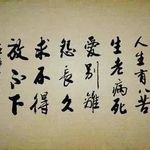 人生有八苦
生老病死
爱别離
怨长久
求不得
放不下